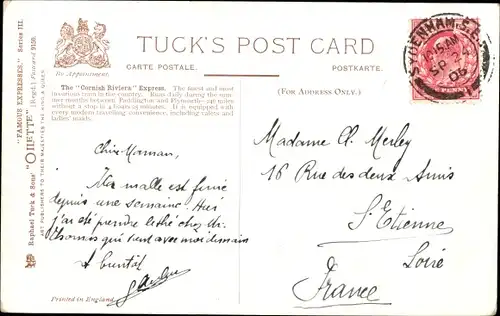 TUCK'S POST CARD
CARTE POSTALE.
POSTKARTE.
By Appointment.
(FOR ADDRESS ONLY.)
"FAMOUS EXPRESSES." Series III.
Raphael Tuck & Sons' "OILETTE" [Regd.] Postcard 9150.
ART PUBLISHERS TO THEIR MAJESTIES THE KING & QUEEN.
The "Cornish Riviera" Express. The latest and most
luxurious train in the country. Runs daily during the summer
months between Paddington and Plymouth—246 miles
without a stop in 4 hours 25 minutes. It is equipped with
every modern travelling convenience, including valets and
ladies' maids.
SYDENHAM. S.E.
SP
05
Chère Maman,
Ma malle est finie
depuis une semaine. Hier
j'ai été prendre le thé chez Mr.
Thomas qui vient avec moi demain
A bientôt
Printed in England.
Madame Cl. Merley
16 Rue des deux Amis
St. Etienne
Loire
France